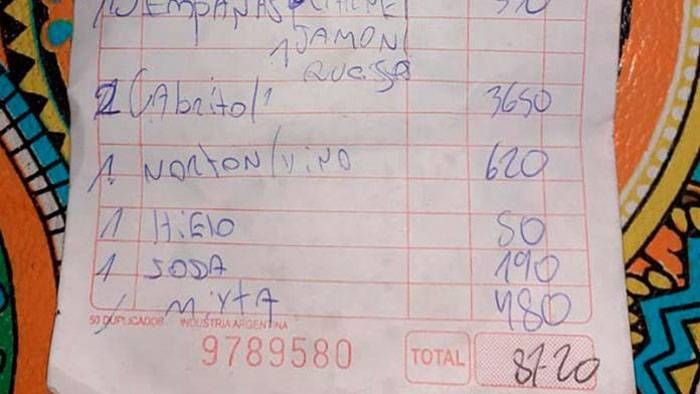 EMPANAS
1 JAMON
QUESO
2 CABrito 3650
1 NORTON/VINO 620
1 HiElo 50
1 SODA 190
1 MixtA 480
50 DUPLICADOS INDUSTRIA ARGENTINA
9789580 TOTAL 8720